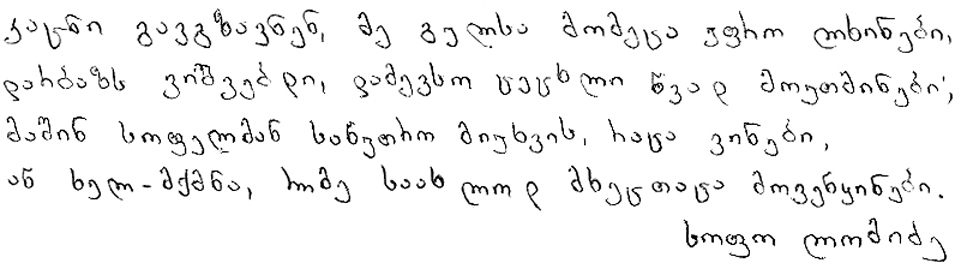 კაცნი გავგზავნენ, მე გულსა მომეცა უფრო ლხინები,
დარბაზს ვიშვებდი, დამევსო ცეცხლი წვად მოუთმინები;
მაშინ სოფელმან საწუთრო მიუხვის, რაცა ვინები,
ან ხელ-მქმნა, რომე საახლოდ მხეცთაცა მოვეწყინები.
სოფო ლომიძე